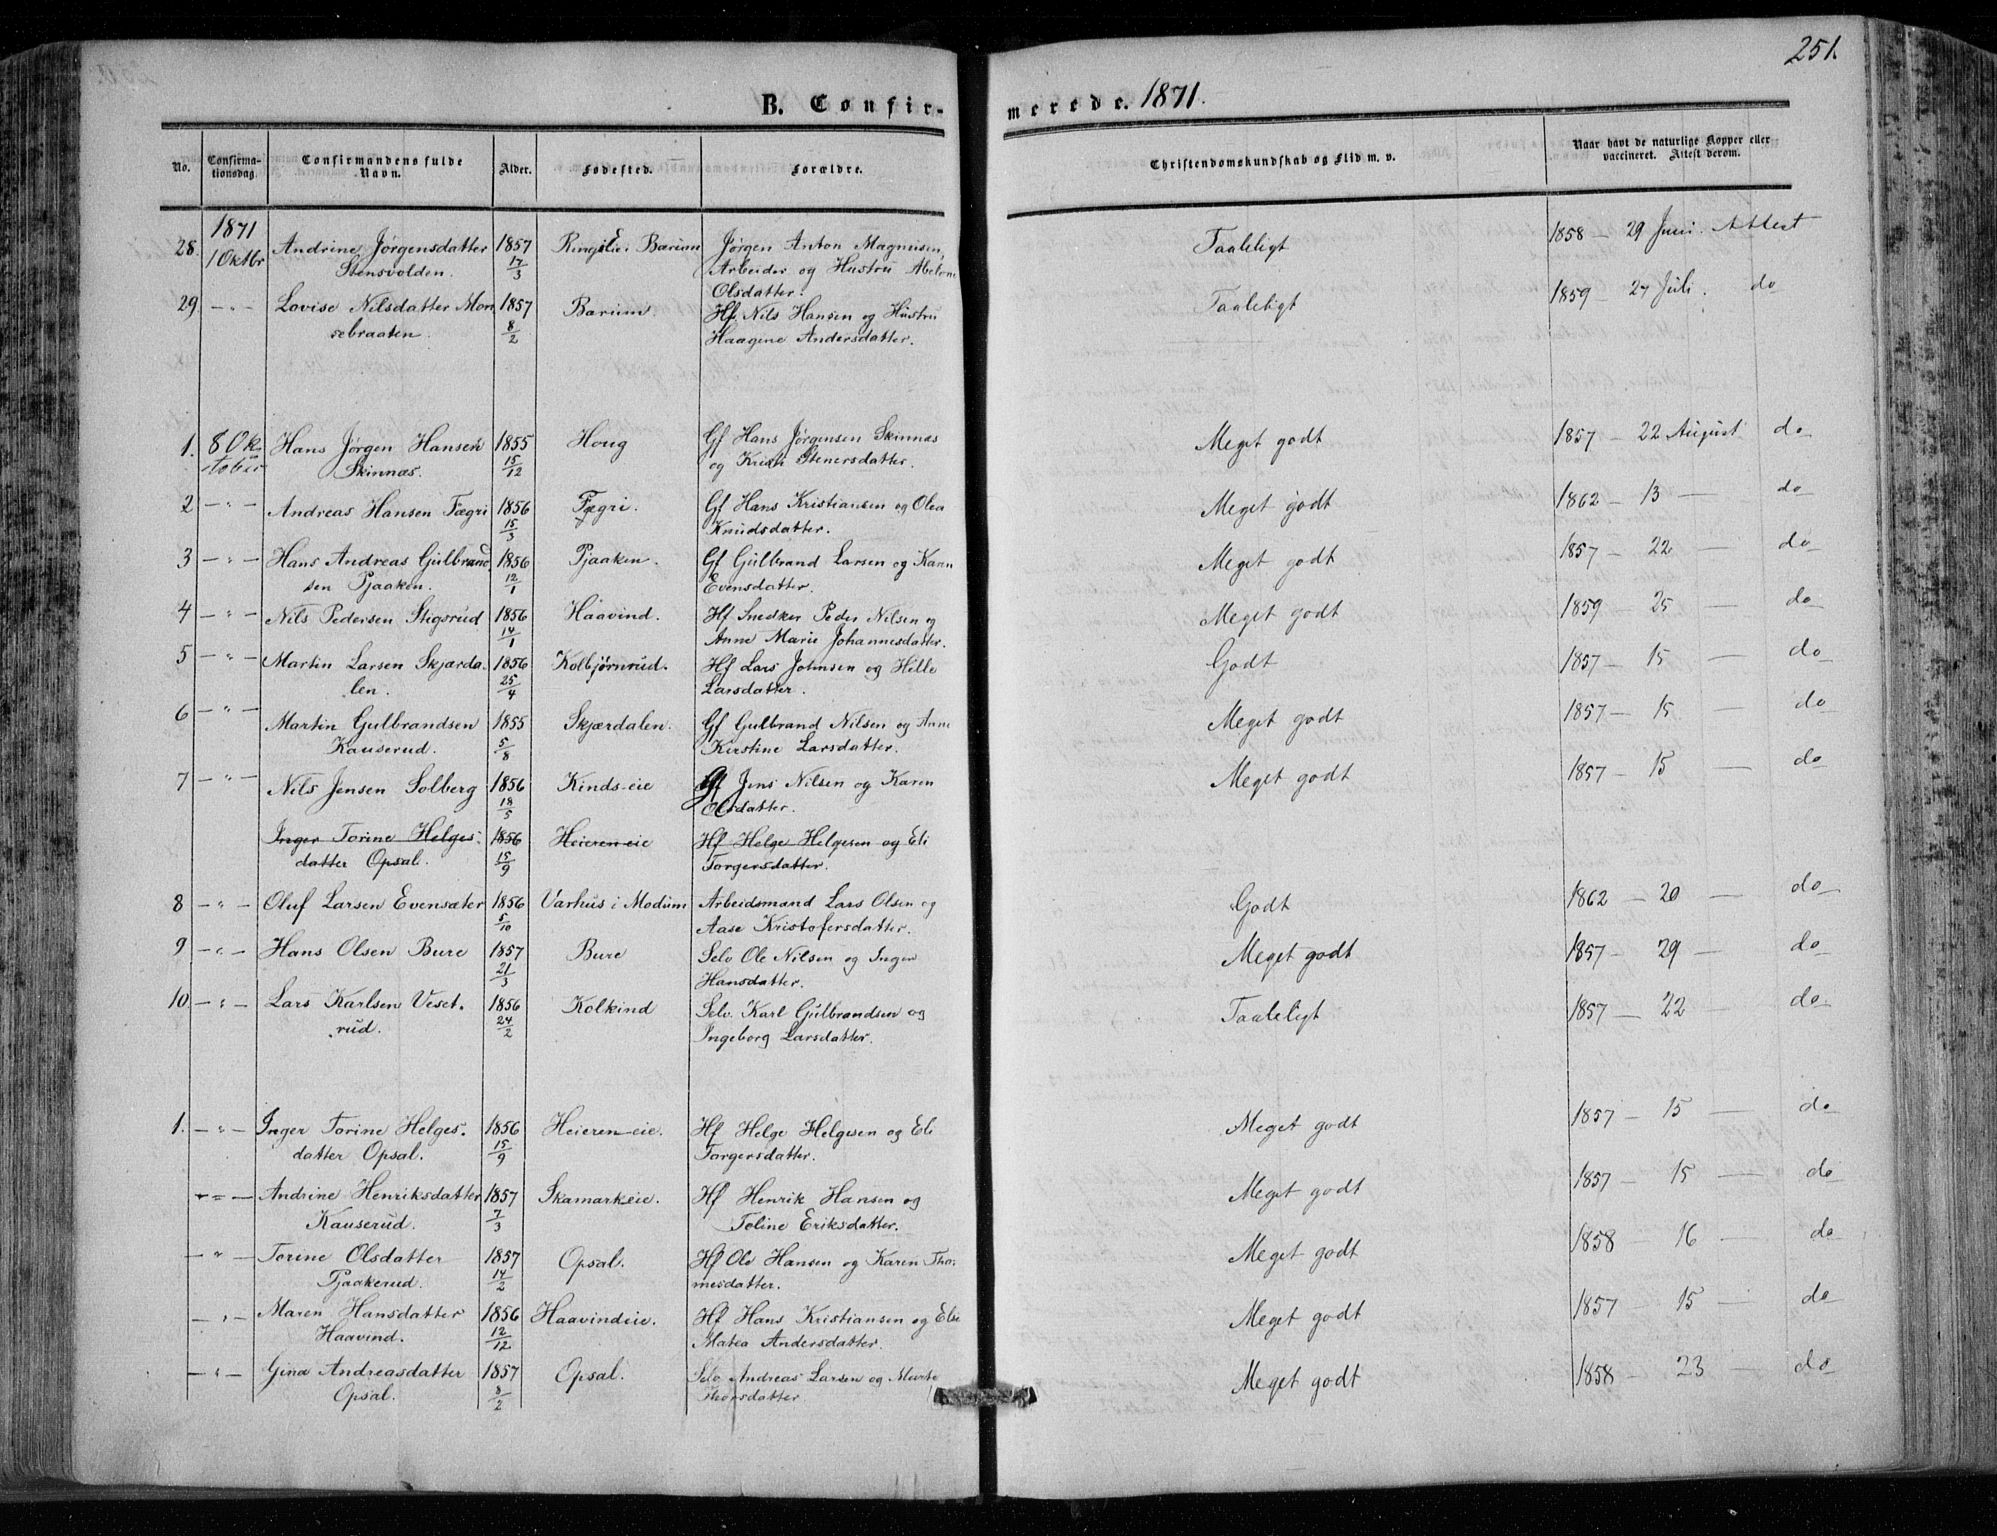 251.
B. Confir- merede. 1871.
No. Confirma-tionsdag. Confirmandens fulde Navn. Alder. Fødested. Forældre. Christendomskundskab og Flid m. v. Naar havt de naturlige Kopper eller vaccineret. Attest derom.
1871
28. 1 Oktbr Andrine Jørgensdatter 1857 Bærum Jørgen Anton Magnusen, Taaleligt 1858 – 29 Juni. Attest
Stensvolden. 17/3 Arbeider og Hustru
Olsdatter.
29. – " – Lovise Nilsdatter Mon 1857 Bærum. Hf. Nils Hansen og Hustru Taaleligt 1859 – 27 Juli. do
sebraaten. 8/2 Haagine Andersdatter.
1. 8 Ok Hans Jørgen Hansen 1855 Houg Gf Hans Jørgensen Skinnæs Meget godt 1857 – 22 August do
tober Skinnæs. 15/12 og Kristi Stenersdatter.
2 – " – Andreas Hansen Fægri 1856 Fægri. Gf Hans Kristiansen og Olea Meget godt 1862 – 13 — do
15/3 Knudsdatter.
3 – " – Hans Andreas Gulbrand 1856 Pjaaken. Gf Gulbrand Larsen og Karen Meget godt 1857 – 22 — do
sen Pjaaken. 12/1 Evensdatter.
4 – " – Nils Pedersen Stigsrud 1856 Haavind. Hf Snedker Peder Nilsen og Meget godt 1859 – 25 — do
14/1 Anne Marie Johannesdatter.
5 – " – Martin Larsen Skjærda- 1856 Kolbjørnrud. Hf Lars Johnsen og Hille Godt 1857 – 15 — do
len. 25/4 Larsdatter.
6 – " – Martin Gulbrandsen 1855 Skjærdalen. Gf Gulbrand Nilsen og Anne Meget godt 1857 – 15 — do
Kauserud. 5/8 Kirstine Larsdatter.
7 – " – Nils Jensen Solberg 1856 Kinds-eie Gf Jens Nilsen og Karen Meget godt 1857 – 15 — do
18/5 Olsdatter.
Inger Torine Helges- 1856 Heieren eie Hf Helge Helgesen og Eli
datter Opsal. 15/9 Torgersdatter.
8 – " – Oluf Larsen Evensæter 1856 Varhus i Modum Arbeidsmand Lars Olsen og Godt 1862 – 20 — do
5/10 Aase Kristofersdatter.
9 – " – Hans Olsen Bure 1857 Bure Selv Ole Nilsen og Inger Meget godt 1857 – 29 — do
21/3 Hansdatter.
10 – " – Lars Karlsen Veset- 1856 Kolkind Selv. Karl Gulbrandsen og Taaleligt 1857 – 22 — do
rud. 24/2 Ingeborg Larsdatter.
1. – " – Inger Torine Helges- 1856 Heieren eie. Hf Helge Helgesen og Eli Meget godt 1857 – 15 — do
datter Opsal. 15/9 Torgersdatter.
– " – Andrine Henriksdatter 1857 Skamarkeie. Hf Henrik Hansen og Meget godt 1857 – 15 — do
Kauserud. 7/3 Toline Eriksdatter.
– " – Torine Olsdatter 1857 Opsal. Hf Ole Hansen og Karen Tho- Meget godt 1858 – 16 — do
Pjaakerud. 14/2 mesdatter.
– " – Maren Hansdatter 1856 Haavindeie. Hf Hans Kristiansen og Else Meget godt 1857 – 15 — do
Haavind. 12/12 Matea Andersdatter.
– " – Gina Andreasdatter 1857 Opsal. Selv. Andreas Larsen og Marte Meget godt 1858 – 23 — do
Opsal. 8/2 Thorsdatter